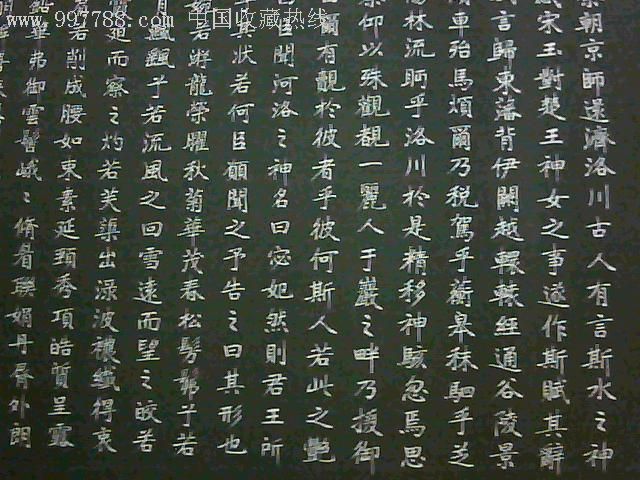 www.997788.com 中国收藏热线
朝京師還濟洛川古人有言斯水之神
宋王對楚王神女之事遂作斯賦其辭
言歸東藩背伊闕越轘轅經通谷陵景
車殆馬煩爾乃稅駕乎蘅皋秣駟乎芝
林流眄乎洛川於是精移神駭忽焉思
仰以殊觀覩一麗人于巖之畔乃援御
爾有覿於彼者乎彼何斯人若此之艷
臣聞河洛之神名曰宓妃然則君王所
狀若何臣願聞之予告之曰其形也
若游龍榮曜秋菊華茂春松髣髴予若
飄予若流風之回雪遠而望之皎若
而察之灼若芙蕖出淥波襛纖得衷
若削成腰如束素延頸秀項皓質呈露
華弗御雲髻峨〻脩眉聯娟丹脣外朗